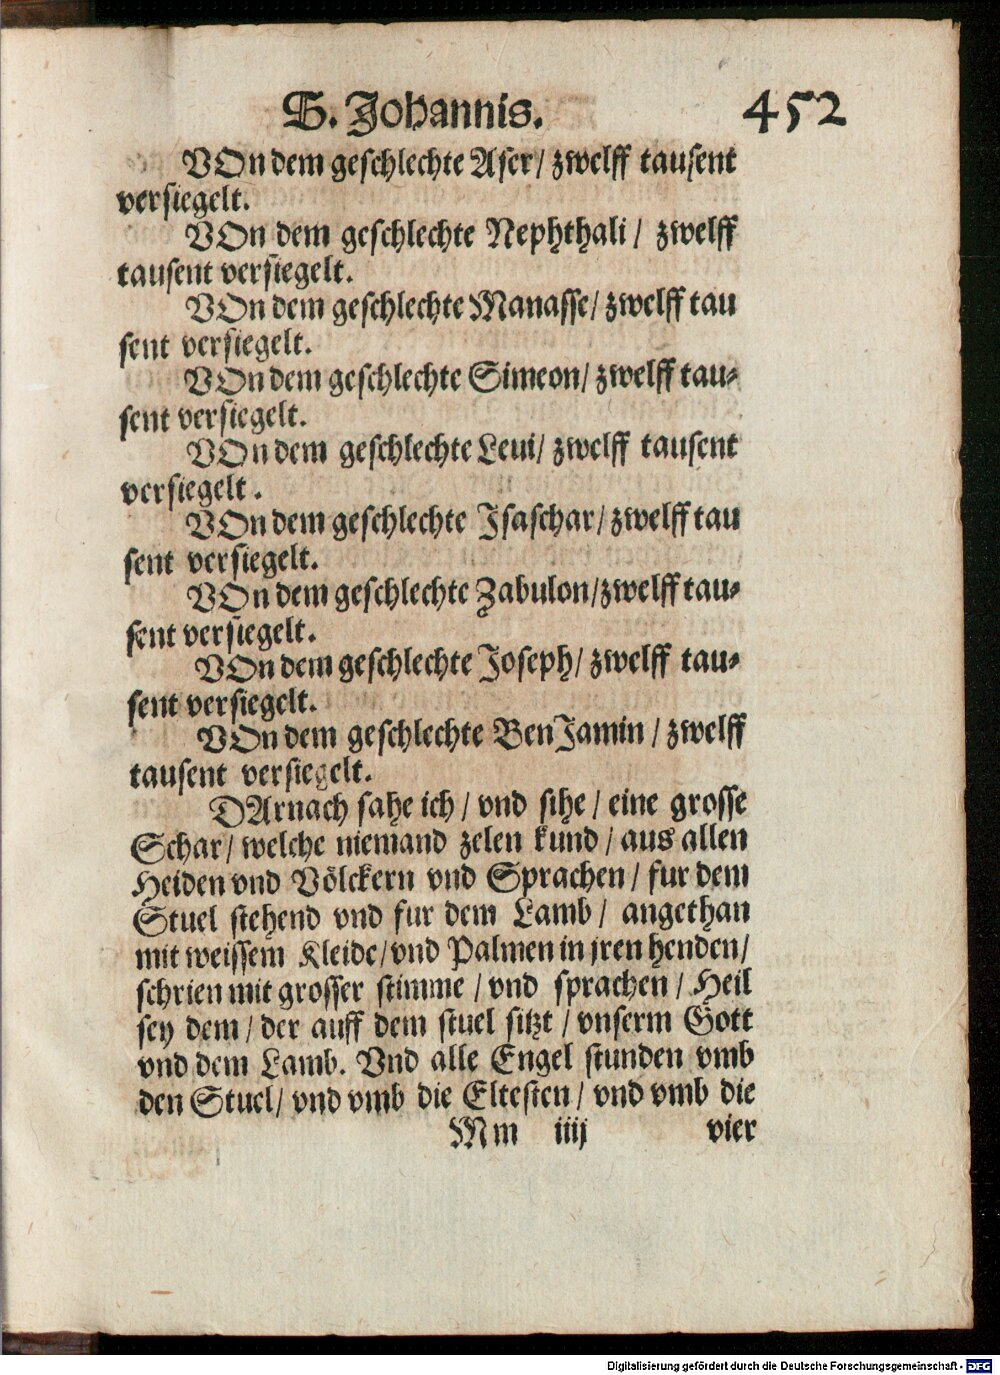 S. Johannis. 452
VOn dem geschlechte Aser/ zwelff tausent
versiegelt.
VOn dem geschlechte Nephthali/ zwelff
tausent versiegelt.
VOn dem geschlechte Manasse/ zwelff tau
sent versiegelt.
VOn dem geschlechte Simeon/ zwelff tau⸗
sent versiegelt.
VOn dem geschlechte Leui/ zwelff tausent
versiegelt.
VOn dem geschlechte Isaschar/ zwelff tau
sent versiegelt.
VOn dem geschlechte Zabulon/ zwelff tau⸗
sent versiegelt.
VOn dem geschlechte Joseph/ zwelff tau⸗
sent versiegelt.
VOn dem geschlechte BenJamin/ zwelff
tausent versiegelt.
DArnach sahe ich/ vnd sihe/ eine grosse
Schar/ welche niemand zelen kund/ aus allen
Heiden vnd Völckern vnd Sprachen/ fur dem
Stuel stehend vnd fur dem Lamb/ angethan
mit weissem Kleide/ vnd Palmen in jren henden/
schrien mit grosser stimme/ vnd sprachen/ Heil
sey dem/ der auff dem stuel sitzt/ vnserm Gott
vnd dem Lamb. Vnd alle Engel stunden vmb
den Stuel/ vnd vmb die Eltesten/ vnd vmb die
Mm iiij vier
Digitalisierung gefördert durch die Deutsche Forschungsgemeinschaft - DFG